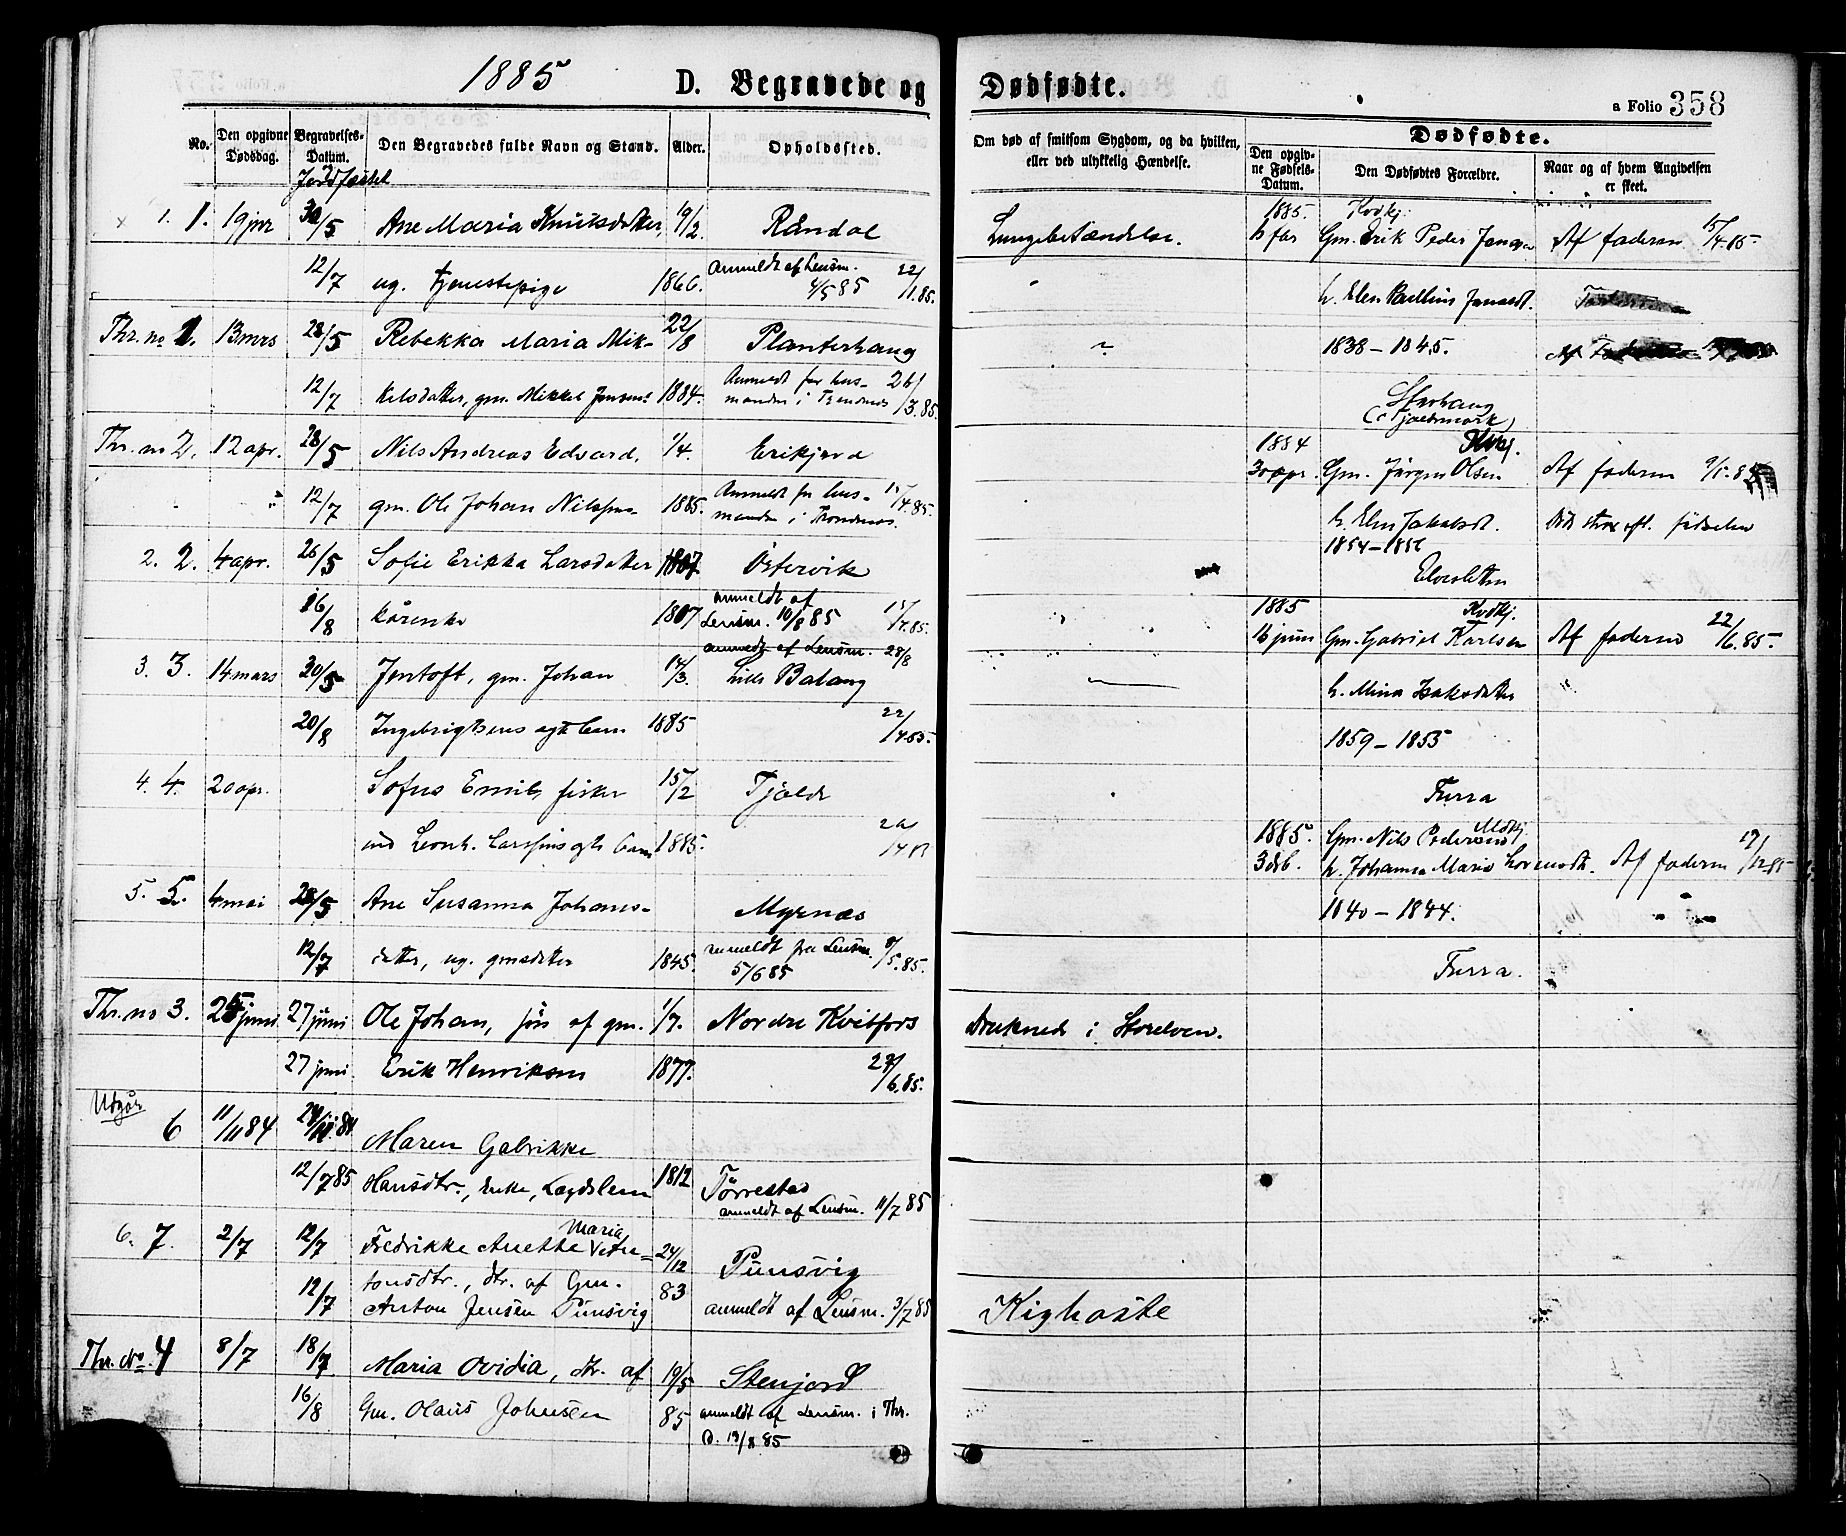 1885 D. Begravede og Dødfødte. a Folio 358
No. Den opgivne Dødsdag. Begravelses-Datum. Jordfæstet Den Begravedes fulde Navn og Stand. Alder. Opholdssted.
Om død af smitsom Sygdom, og da hvilken, eller ved ulykkelig Hændelse.
Dødfødte.
Den opgivne Fødsels-Datum. Den Dødfødtes Forældre. Naar og af hvem Angivelsen er skeet.
1. 1. 19 jnr 30/5 Ane Maria Knutsdatter, 19/2. Råndal Lungebetændelse.
12/7 ug. tjenestepige 1866. Anmeldt af Lensm. 4/5 85 22/1.85.
Thr. no 1. 13 mrs 28/5 Rebekka Maria Mik- 22/8 Planterhaug
12/7 kelsdatter, gm. Mikkel Jensens 1884. Anmeldt for hus- manden i Trondenes 26/3.85.
Thr. no 2. 12 apr. 28/5 Nils Andreas Edvard, 1/4. Erikjord
12/7 gm. Ole Johan Nilssens 1885. Anmeldt for hus- manden i Trondenes. 15/4.85.
2. 2. 4 apr. 26/5 Sofie Erikka Larsdatter 1807 Østervik
16/8 kårenke 1807 anmeldt af Lensm. 10/8 85 15/4.85.
anmeldt af Lensm. 28/8
3. 3. 14 mars 30/5 Jentoft, gm. Johan 14/3. Lille Balang
20/8 Ingebrigtsens egte barn 1885 22/4.85.
4. 4. 20 apr. Sofus Emil, fisker 15/2 Tjeldø
ind Leonh. Larssens egte barn 1885.
5. 5. 4 mai 28/5 Ane Susanna Johans- Myrnæs
12/7 datter, ug. gmsdatter 1845. anmeldt fra Lensm. 5/6 85 8/5.85.
Thr. no 3. 25 juni 27 juni Ole Johan, søn af gm. 1/7. Nordre Kvitfors Druknede i Storelven.
27 juni Erik Henriksen 1877. 29/6.85.
Udgår
6 11/11 84 Maren Gabrikke
12/7 85 Hansdtr., Enke, Lægdslem 1812 Tørrestad
anmeldt af Lensm. 11/7 85
6. 7. 2/7 12/7 Fredrikke Anette Maria An- 24/12 Punsvig
12/7 tonsdtr., dtr. af Gm. 83
Anton Jensen Punsvig anmeldt af Lensm. 3/7 85 Kighoste
Thr. No. 4 8/7 18/7. Maria Ovidia, dtr. af 19/5 Stenjord
16/8 Gm. Olaus Johnsen 85 anmeldt af Lensm. i Thr.
D. 19/8 85
1885. Kvdkj.
15 fbr Gm. Erik Peder Jensen Af faderen 15/4.85.
h. Elen Paulline Jensdt.
1838 – 1845.
Storhaug
(Tjaldsmark)
1884 Kvkj.
30 apr. Gm. Jørgen Olsen Af faderen 9/1.85
h. Elen Jakobsdt. Døde strax eft. fødselen
1854 – 1856
Elvesletten
1885 Kvdkj.
16 juni Gm. Gabriel Karlsen Af faderen 22/6.85.
h. Mina Isaksdatter
1859 – 1853
Furra
1885. Gm. Nils Pedersen Mdkj.
3 db. h. Johanna Maria Lorensdt. Af faderen 19/12 85
1840 – 1844.
Furra.